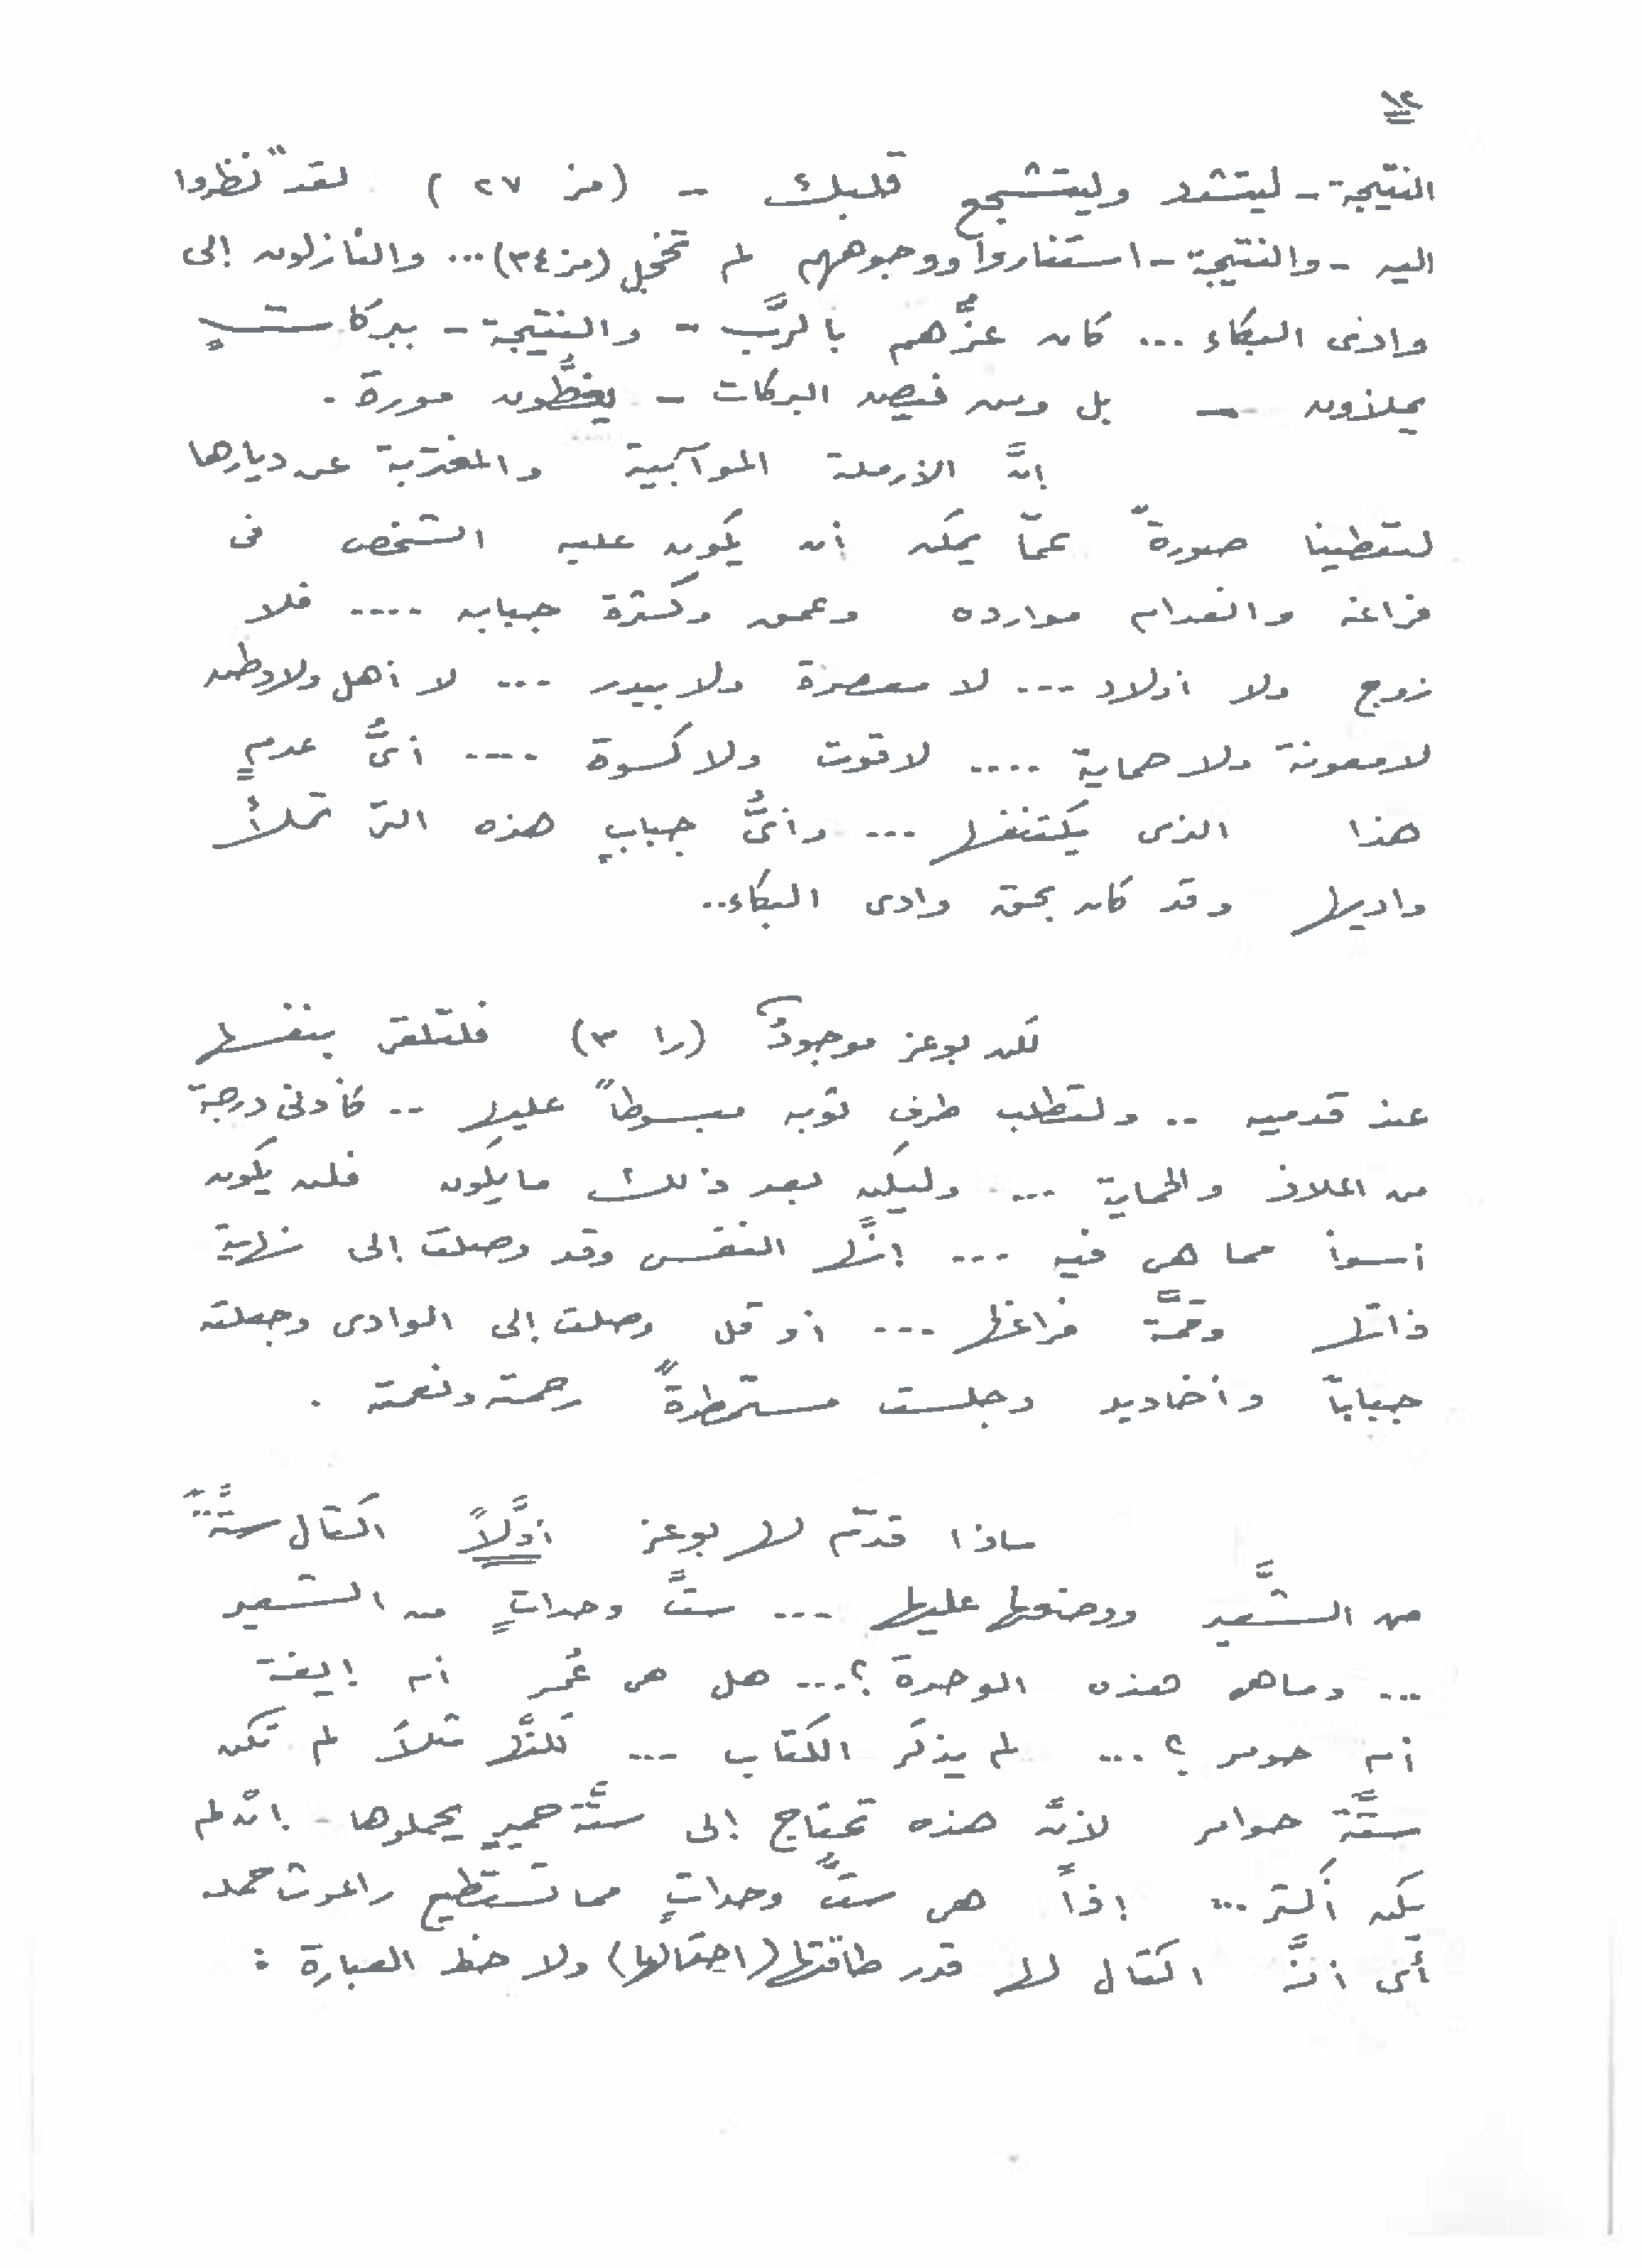 ١٢
النتيجة - ليتشدد وليتشجع قلبك - (مز ٢٧) لقد "نظروا
اليه - والنتيجة - استناروا ووجوههم لم تخجل (مز ٣٤) ... والنازلون إلى
وادى البكاء ... كان عزُّهم بالرَّب - والنتيجة - ببركاتٍ
يملأون - بل ومن فيض البركات - يغطُّون مورة .
إنَّ الأرملة الموآبية والمغتربة عن ديارها
لتعطينا صورةً عمّا يمكن أن يكون عليه الشخص فى
فراغه وانعدام موارده وعمق وكثرة جبابه .... فلا
زوج ولا أولاد ... لا معصرة ولا بيدر ... لا أهل ولا وطن
لا معونة ولا حماية .... لا قوت ولا كسوة .... أىُّ عدمٍ
هذا الذى يكتنفها ... وأىُّ جبابٍ هذه التى تملأُ
واديها وقد كان بحق وادى البكاء..
لكن بوعز موجودٌ (را ٣) فلتلقى بنفسها
عند قدميه .. ولتطلب طرف ثوبه مبسوطاً عليها .. كأدنى درجة
من الملاذ والحماية ... وليكن بعد ذلك مايكون فلن يكون
أسوأ مما هى فيه ... إنَّها النفس وقد وصلت إلى نهاية
ذاتها وقمَّة فراغها ... أو قل وصلت إلى الوادى وجعلته
جباباً وأخاديد وجلست مستمطرةً رحمته ونعمته .
ماذا قدّم لها بوعز أوَّلاً اكتال ستَّةً
من الشَّعير ووضعها عليها ... ستَّ وحداتٍ من الشعير
... وماهى هذه الوحدة ؟... هل هى عُمر أم إيفة
أم حومر ؟ ... لم يذكر الكتاب ... لكنَّها مثلاً لم تكن
ستَّة حوامر لأنَّ هذه تحتاج إلى ستَّة حميرٍ يحملوها - إن لم
يكن أكثر ... إذاً هى ستُّ وحداتٍ مما تستطيع راعوث حمله
أى أنَّه اكتال لها قدر طاقتها (احتمالها) ولاحظ العبارة :